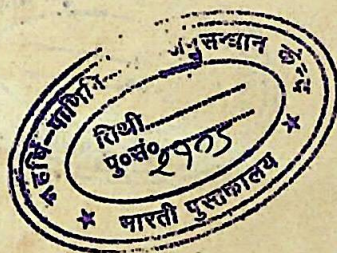 महर्षि-पाणिनि... अनुसन्धान केन्द्र
तिथी..............
पु०सं० २१०५
★ भारती पुस्तकालय ★